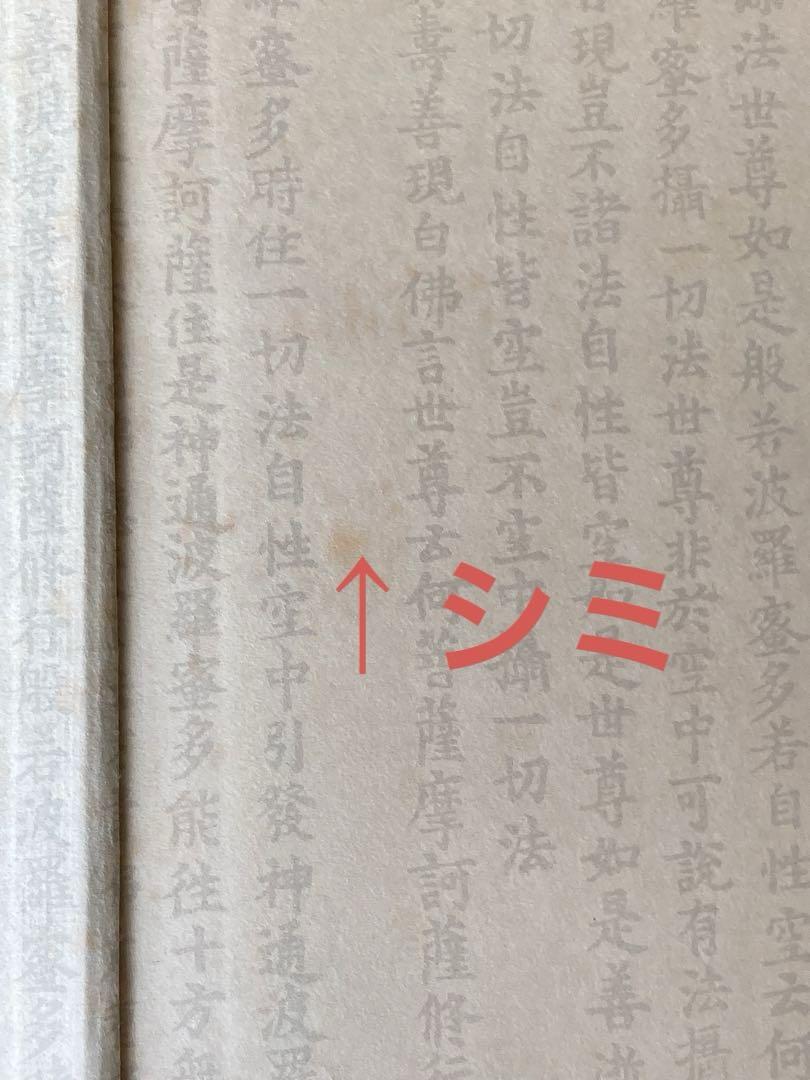 法世尊如是般若波羅蜜多若自性空云何
羅蜜多攝一切法世尊非於空中可說有法攝
現豈不諸法自性皆空如是世尊如是善逝
切法自性皆空豈不空中攝一切法
壽善現白佛言世尊云何菩薩摩訶薩修行
蜜多時住一切法自性空中引發神通波羅
菩薩摩訶薩住是神通波羅蜜多能往十方
善現若菩薩摩訶薩修行般若波羅蜜多
↑シミ